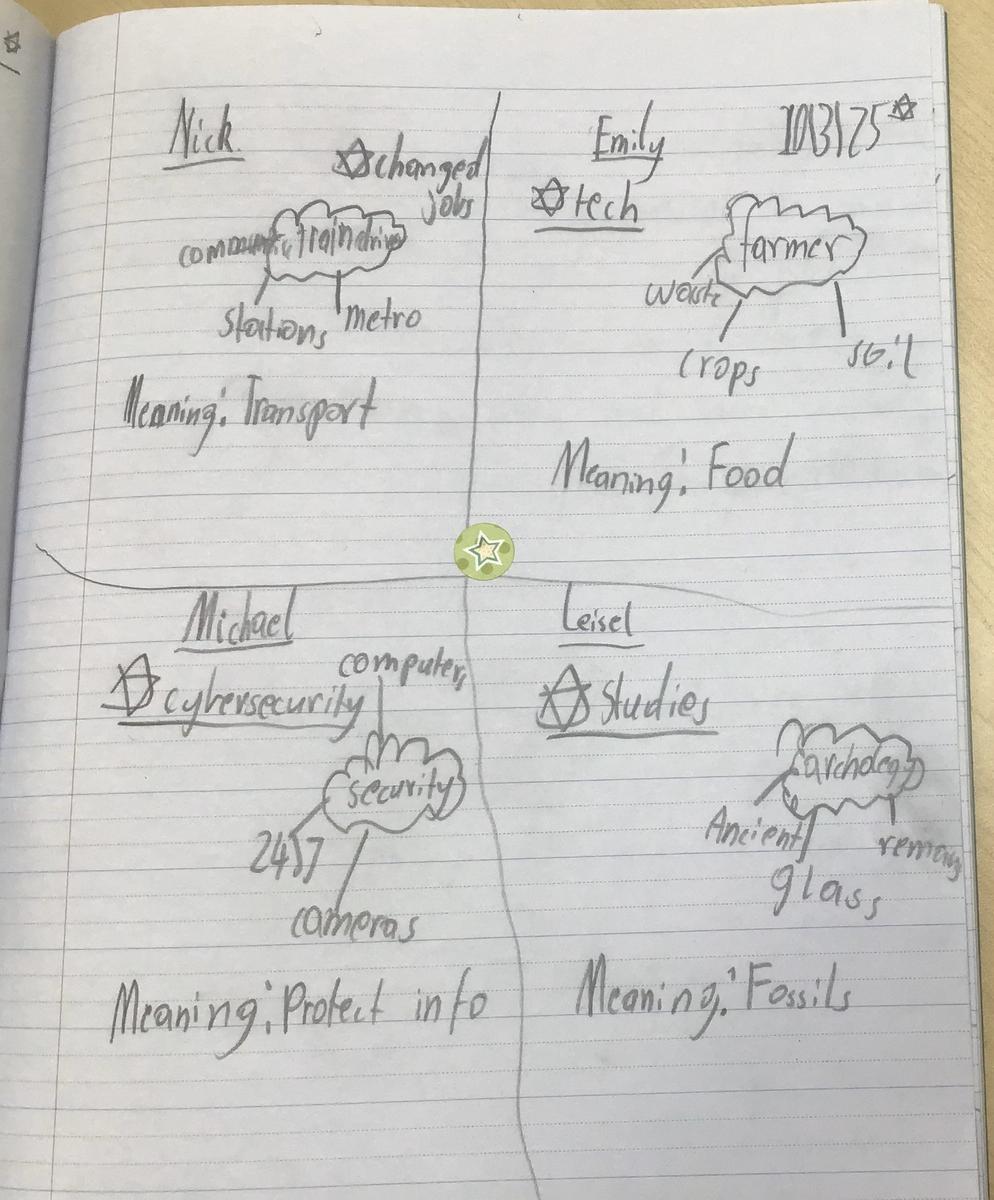 Nick
☆changed
jobs
train driver
stations
metro
Meaning: Transport
Emily
10/3/25☆
☆tech
farmer
waste
crops
soil
Meaning: Food
Michael
☆cybersecurity
computers
security
24/7
cameras
Meaning: Protect info
Leisel
☆Studies
archology
Ancient
remains
glass
Meaning: Fossils